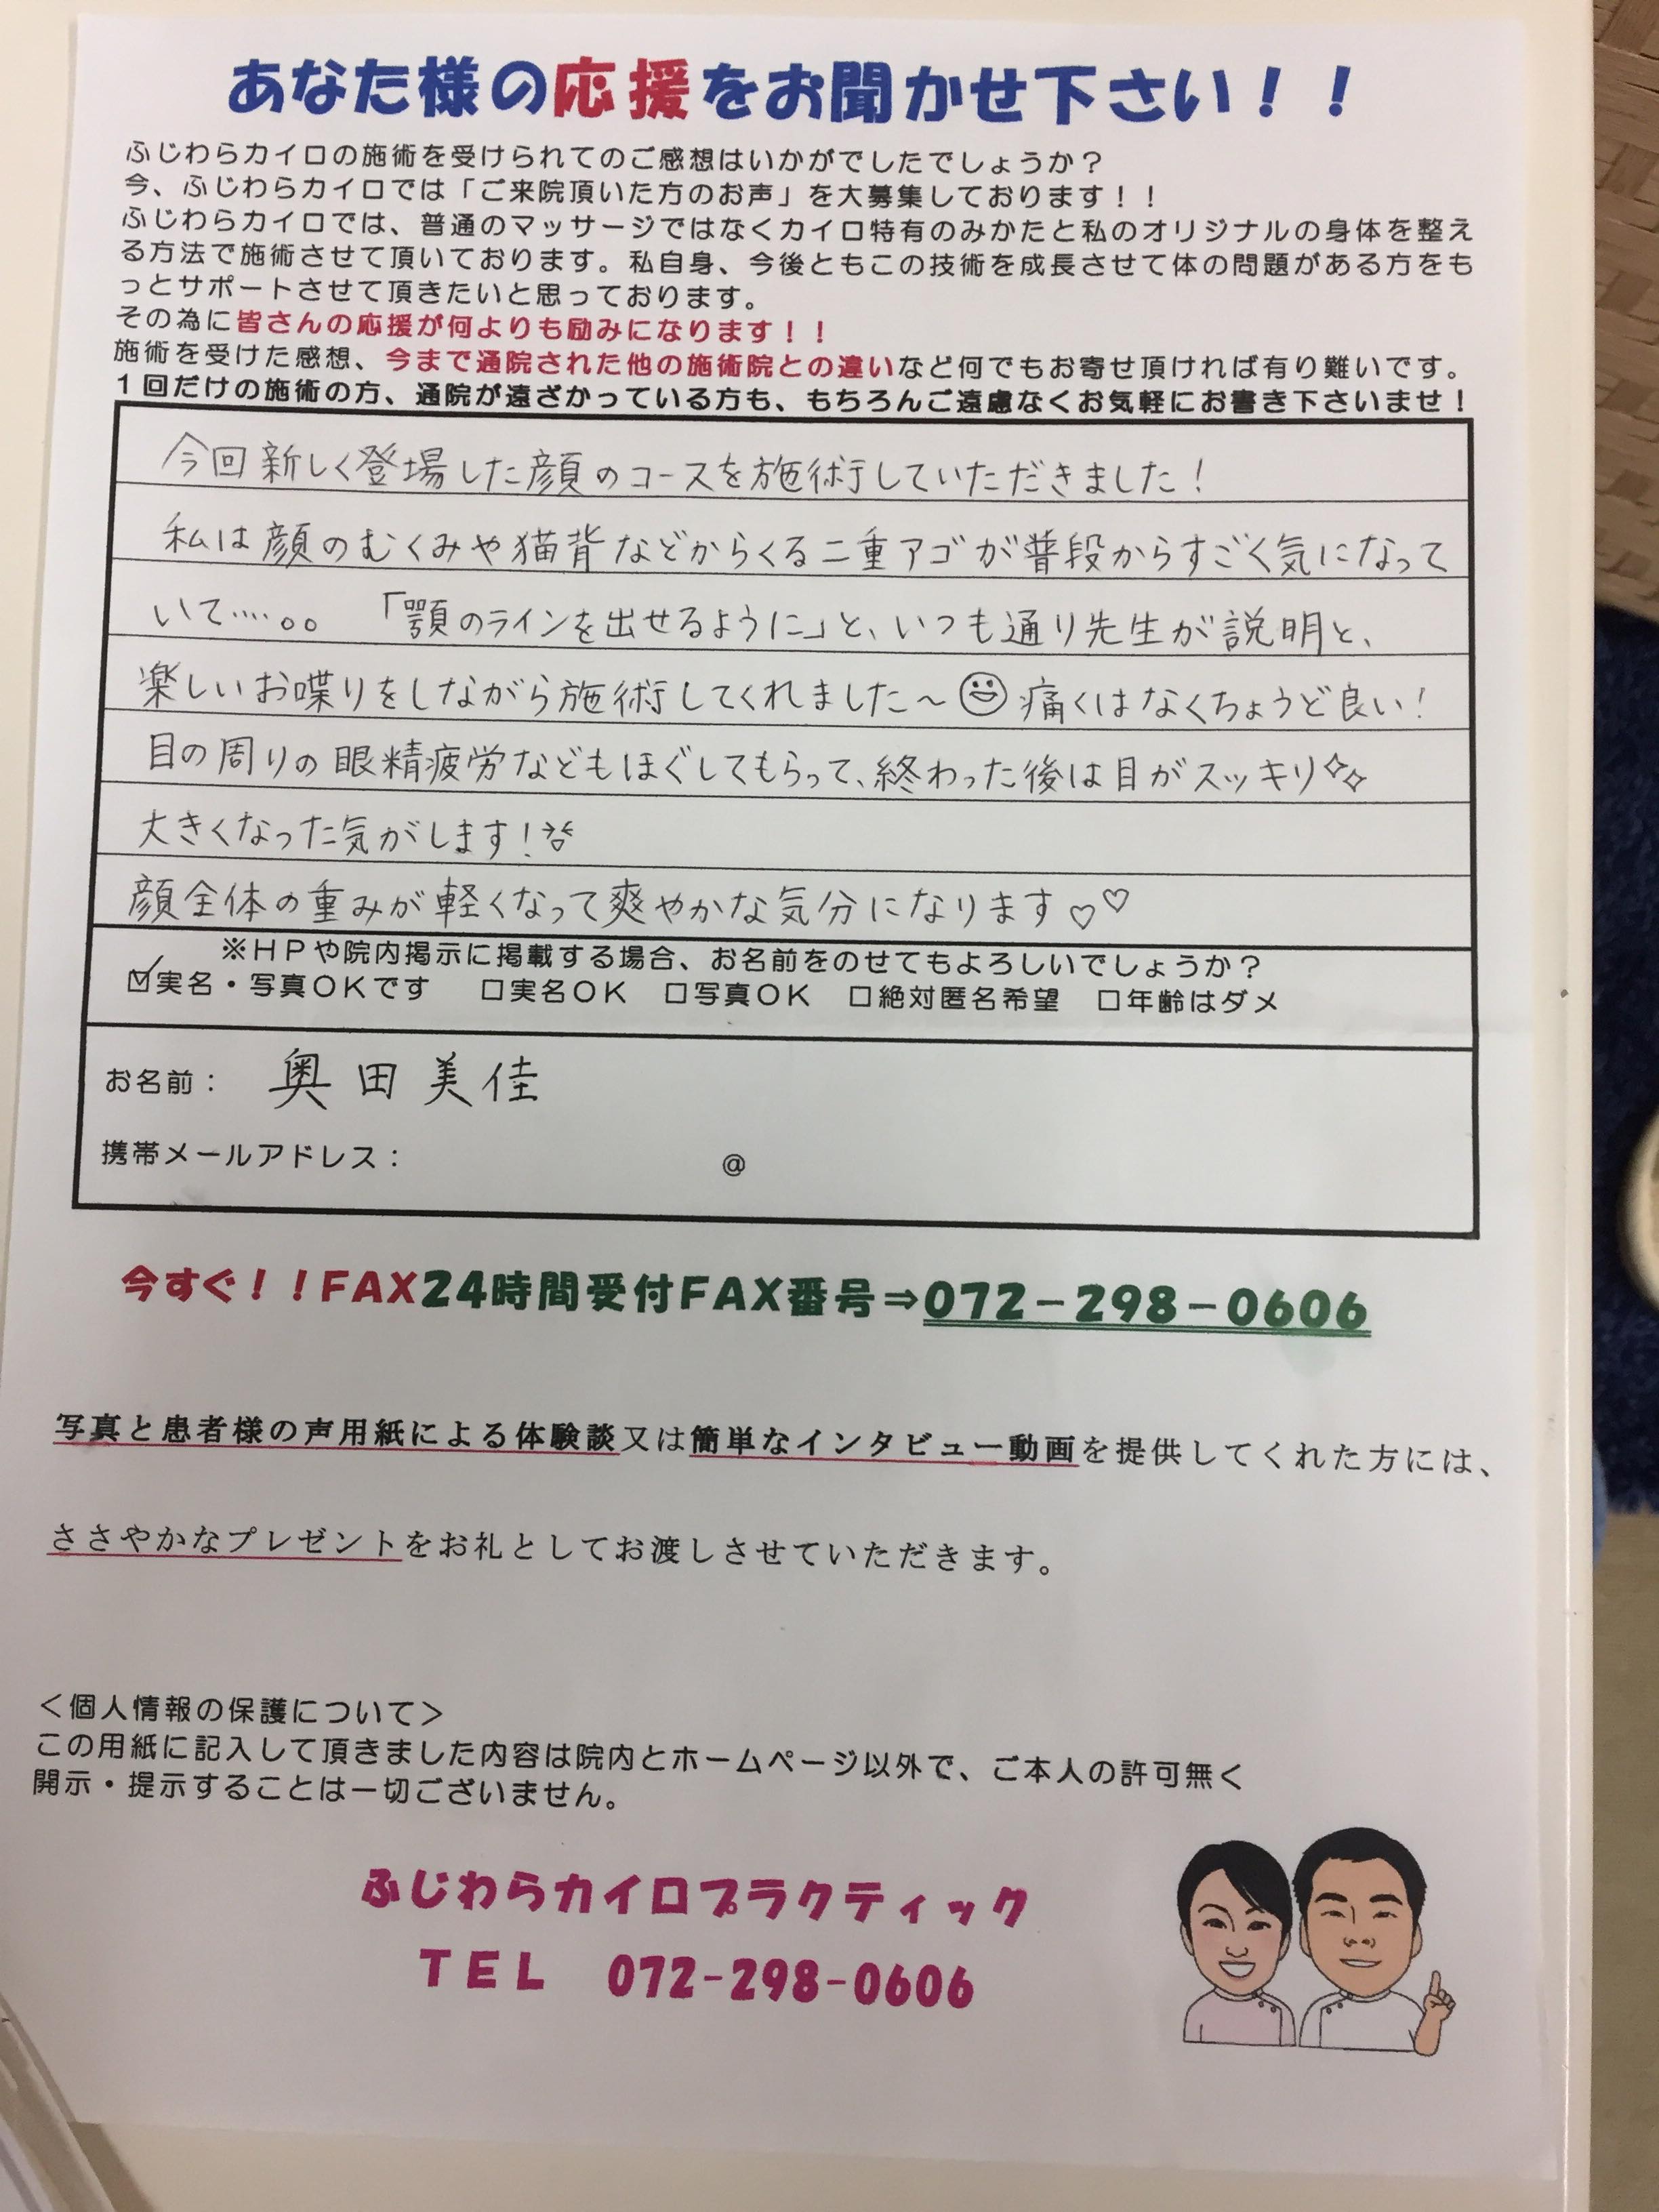 あなた様の応援をお聞かせ下さい！！
ふじわらカイロの施術を受けられてのご感想はいかがでしたでしょうか？
今、ふじわらカイロでは「ご来院頂いた方のお声」を大募集しております！！
ふじわらカイロでは、普通のマッサージではなくカイロ特有のみかたと私のオリジナルの身体を整え
る方法で施術させて頂いております。私自身、今後ともこの技術を成長させて体の問題がある方をも
っとサポートさせて頂きたいと思っております。
その為に皆さんの応援が何よりも励みになります！！
施術を受けた感想、今まで通院された他の施術院との違いなど何でもお寄せ頂ければ有り難いです。
１回だけの施術の方、通院が遠ざかっている方も、もちろんご遠慮なくお気軽にお書き下さいませ！
今回新しく登場した顔のコースを施術していただきました！
私は顔のむくみや猫背などからくる二重アゴが普段からすごく気になって
いて…。。「顎のラインを出せるように」と、いつも通り先生が説明と、
楽しいお喋りをしながら施術してくれました～😃痛くはなくちょうど良い！
目の周りの眼精疲労などもほぐしてもらって、終わった後は目がスッキリ✧✧
大きくなった気がします！
顔全体の重みが軽くなって爽やかな気分になります♡♡
※ＨＰや院内掲示に掲載する場合、お名前をのせてもよろしいでしょうか？
☑実名・写真ＯＫです □実名ＯＫ □写真ＯＫ □絶対匿名希望 □年齢はダメ
お名前： 奥田美佳
携帯メールアドレス： @
今すぐ！！FAX24時間受付FAX番号⇒072－298－0606
写真と患者様の声用紙による体験談又は簡単なインタビュー動画を提供してくれた方には、
ささやかなプレゼントをお礼としてお渡しさせていただきます。
＜個人情報の保護について＞
この用紙に記入して頂きました内容は院内とホームページ以外で、ご本人の許可無く
開示・提示することは一切ございません。
ふじわらカイロプラクティック
ＴＥＬ 072-298-0606